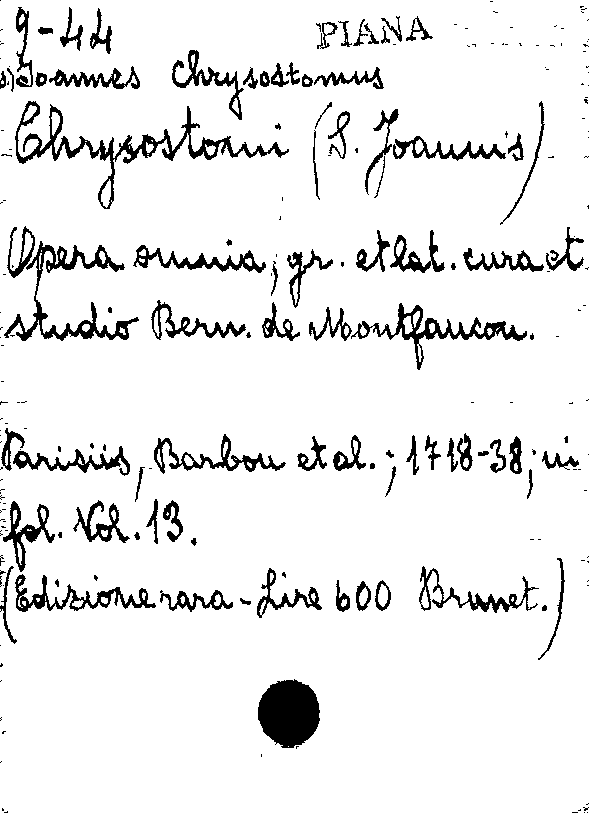 9-44 PIANA
s) Joannes Chrysostomus
Chrysostomi (S. Joannis)
Opera omnia, gr. et lat. cura et
studio Bern. de Montfaucon.
Parisiis, Barbou et al.; 1718-38; in
fol. Vol. 13.
(Edizione rara - Lire 600 Brunet.)